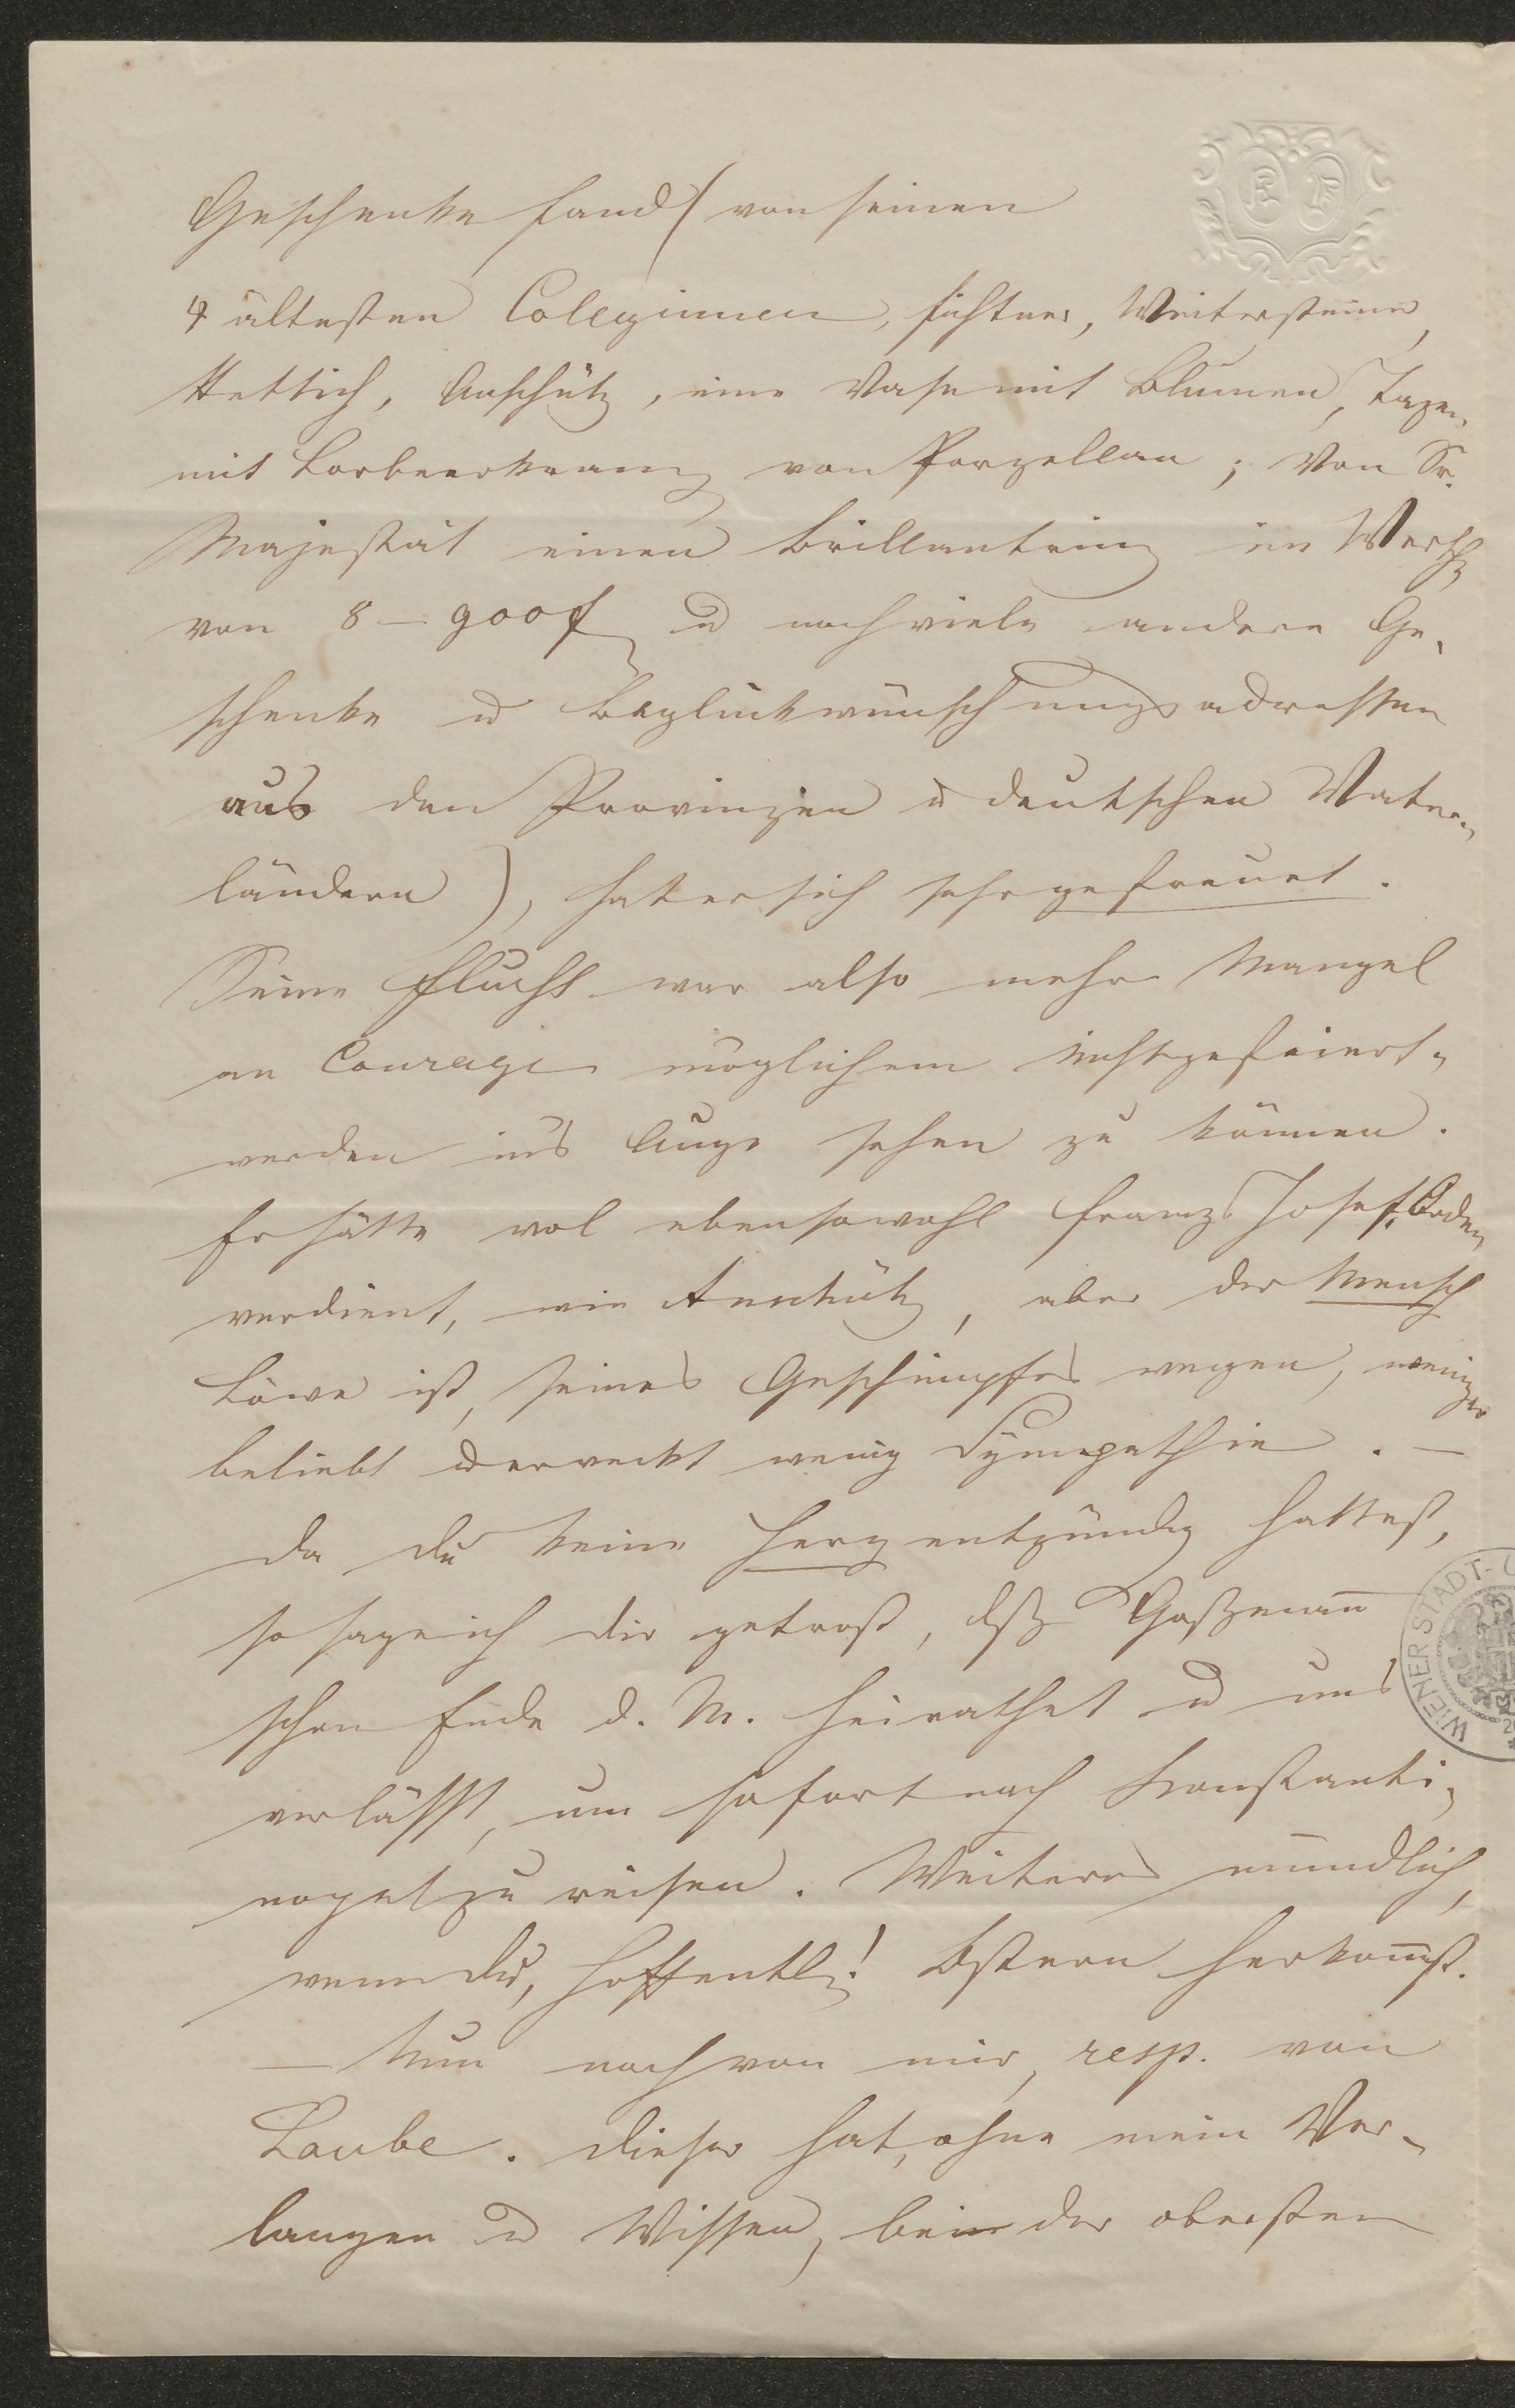 Geschenke fand (von seinen
4 ältesten Colleginnen, Fichtner, Weitersteiner,
Rettich, Anschütz, eine Vase mit Blumen, Tazen
mit Lorbeerkranz von Porzellan; Von Sr.
Majestät einen Brillantring im Werthe
von 8–900 f u noch viele andere Ge-
schenke u Beglückwünschungsadressen
aus den Provinzen u deutschen Vater-
ländern), hat er sich sehr gefreuet.
Seine Flucht war also mehr Mangel
an Courage möglichem Nichtgefeiert-
werden in's Auge sehen zu können.
Er hätte wol ebensowohl Franz Josef, Orden
verdient, wie Anschütz, aber der Mensch
Löwe ist, seines Geschimpfes wegen, weniger
beliebt u erweckt wenig Sympathie. –
Da du keine Herzentzündg hattest,
so sage ich dir getrost, dß Goßmañ
schon Ende d. M. heirathet u uns
verlässt, um sofort nach Konstanti-
nopel zu reisen. Weiteres mündlich,
wenn du, hoffentl.! Ostern herkom̄st.
– Nun noch von mir, resp. von
Laube. Dieser hat, ohne mein Ver-
langen u Wissen, bei der obersten
WIENER STADT-